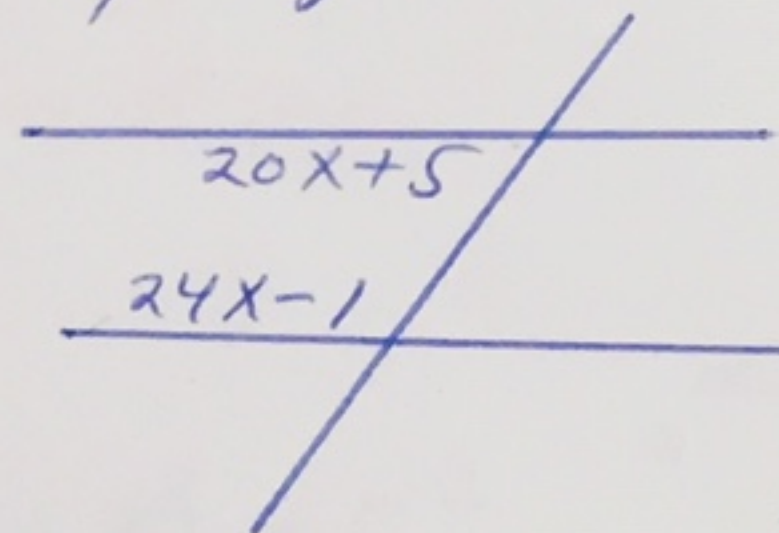 20x+5
24x-1